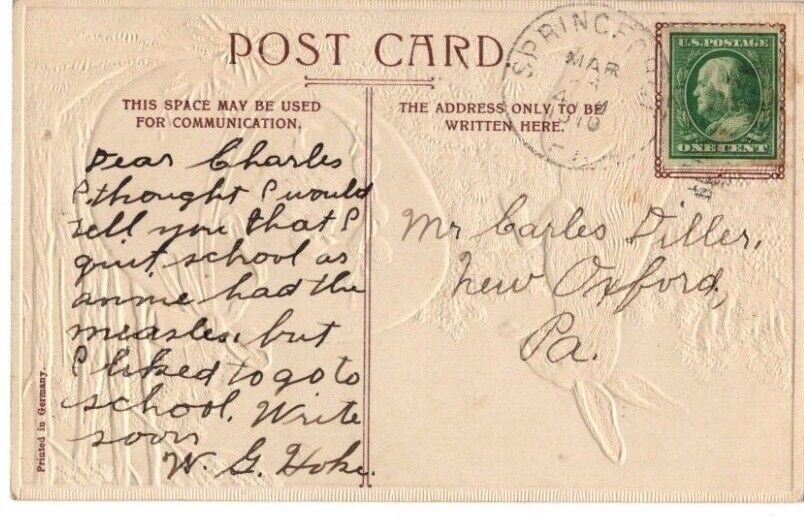 POST CARD
THIS SPACE MAY BE USED
FOR COMMUNICATION.
THE ADDRESS ONLY TO BE
WRITTEN HERE.
SPRING
MAR
1910
U.S. POSTAGE
ONE CENT
Dear Charles
I thought I would
tell you that I
quit school as
anme had the
measles, but
I liked to go to
school. Write
soon
W. G. Hoke.
Mr Carles Diller,
New Oxford,
Pa.
Printed in Germany.